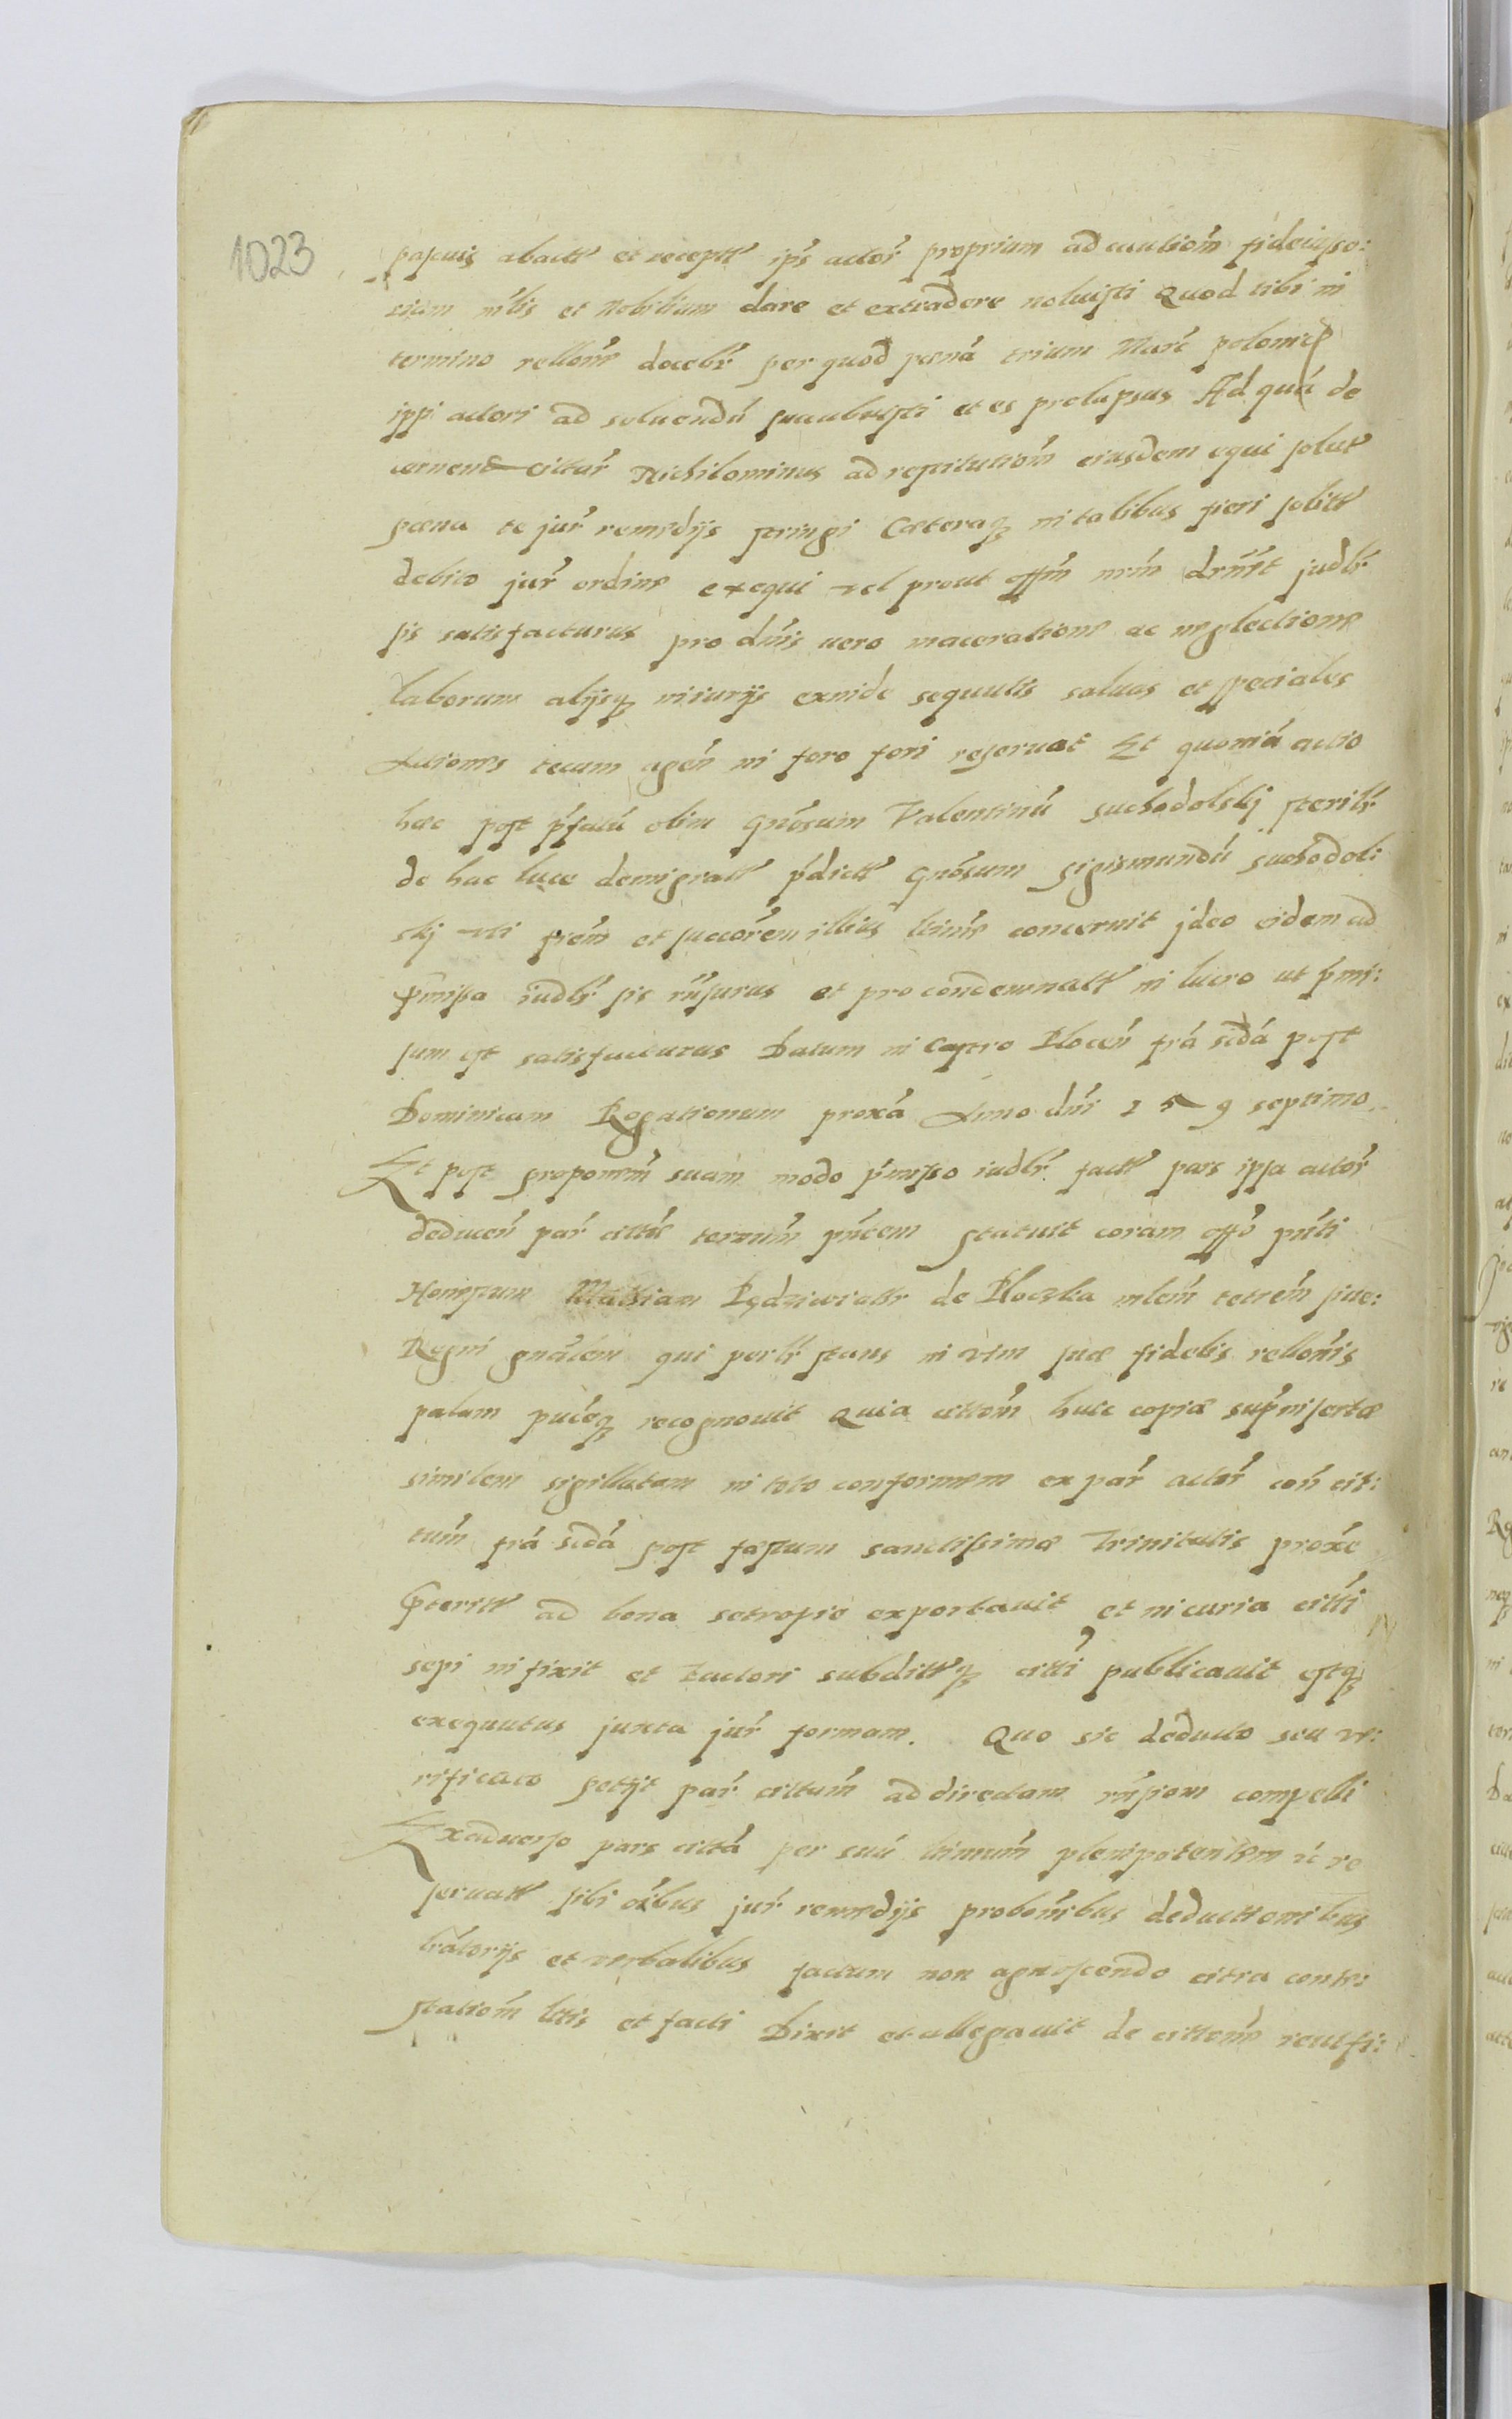 1023
pascuis abactt et receptt ips actor proprium ad cautiom fideiusso:
riam mlis et Nobilium dare et extradere noluisti Quod tibi in
termino rellone docebr per quod pœná trium Marc polonic
ippi actori ad soluendú succubuisti et es prolapsus Ad quá de
cernend cittur Nichilominus ad restitutiom eiusdem equi solut
pœna te jur remedijs stringi Cæteraq in talibus fieri solitt
debito jur ordine exequi vel prout offm nrm judlr
sis satisfacturus pro dnis uero maceratione ac neglectione
laborum alijsq iniurijs exinde sequutis saluas et speciales
Actiones tecum agen in foro fori reseruat Et quoniá actio
hæc post pfatú olim Gnosum Valentinú Suchodolskj sterilr
de hac luce demigratt pdictt Gnosum Sigismundú Suchodol:
skj vti frem et succorem illius ltime concernit jdeo eidem ad
pmissa iudlr sis rnsurus et pro condemnatt in lucro ut pmi:
sum est satisfacturus Datum in Castro Plocen frá scdá post
Dominicam Rogationum proxá Anno dni 159 septimo
Et post proponem suam modo pmisso iudlr factt pars ipsa actor
deducen par citte termm pntem statuit coram offo pnti
Honestum Mathiam de Ploczka mlem tetrem siue:
Regni gnalem qui perlr stans in vim suæ fidelis rellonis
palam puceq recognouit Quia cittom huic copiæ supinsertæ
similem sigillatam in toto conformem ex par actor con cit:
tum frá scdá post festum sanctissimæ Trinitatis proxe
pteritt ad bona setropie exportauit et in curia citti
sepi infixit et Factori subdittq citti publicauit estq
exequutus juxta jur formam. Quo sic deducto seu ve:
rificato petijt par cittum ad directam rnsiom compelli
Exaduerso pars cittá per suú ltimum plenipotentem re
seruatt sibi oibus jur remedijs probonibus deducttonibus
lratorijs et verbalibus factum non agnoscendo citra conte:
statiom litis et facti Dixit et allegauit de cittone